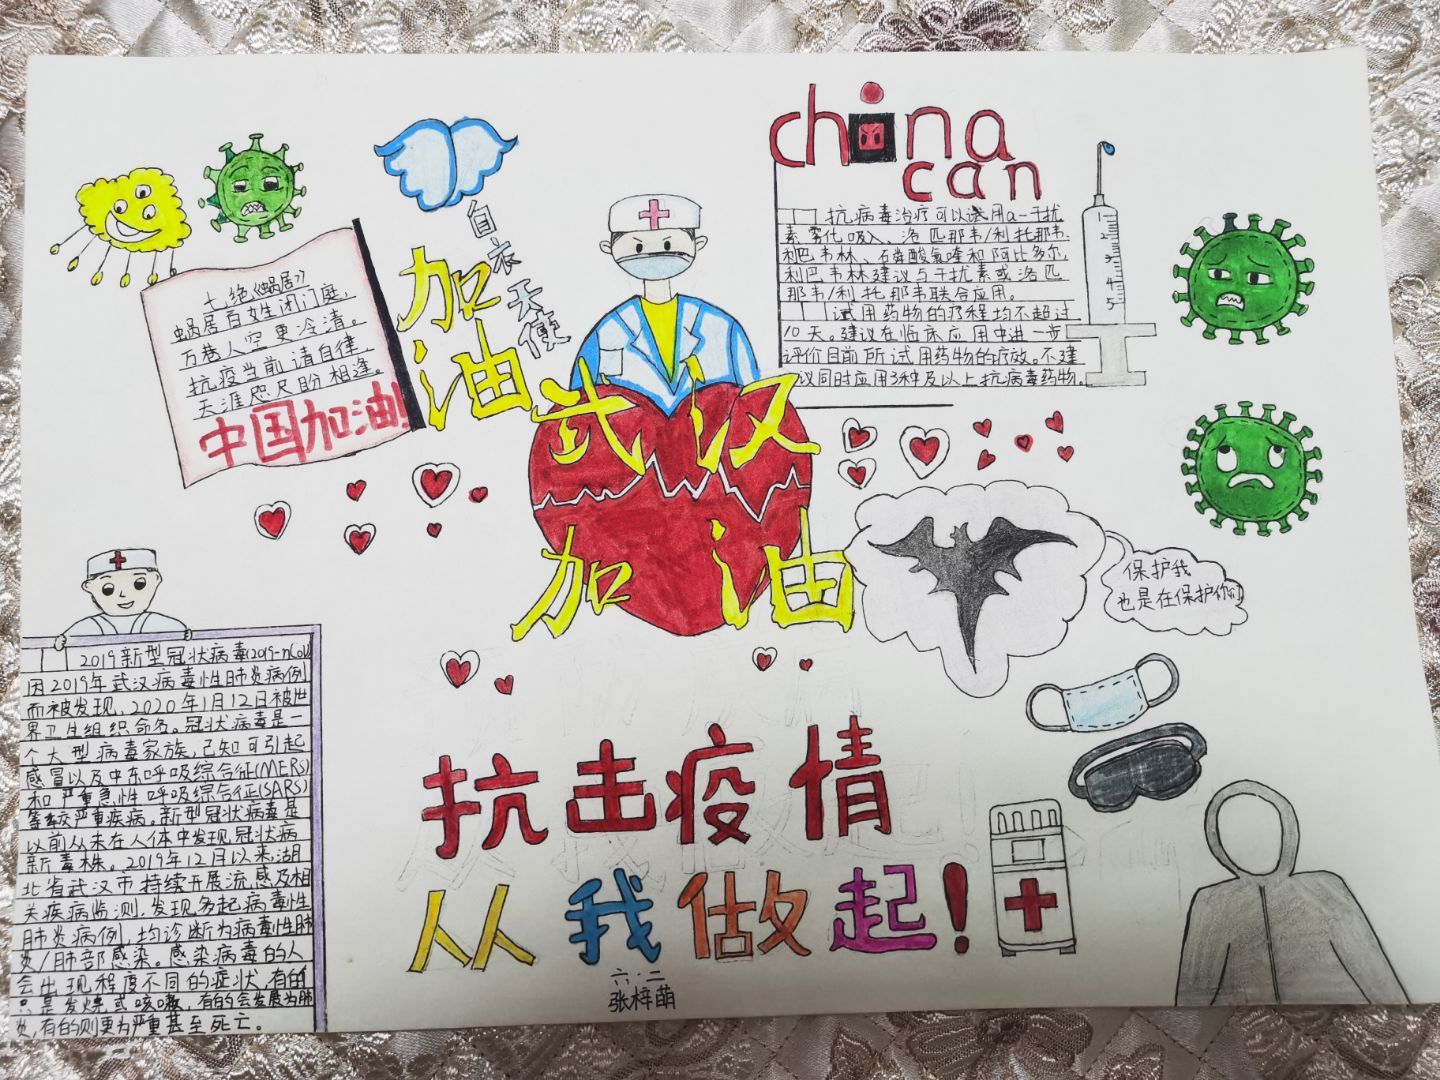 china
can
抗病毒治疗可以试用a-干扰
素雾化吸入、洛匹那韦/利托那韦、
利巴韦林、石粦酸氯喹和阿比多尔,
利巴韦林建议与干扰素或洛匹
那韦/利托那韦联合应用。
试用药物的疗程均不超过
10天。建议在临床应用中进一步
评价目前所试用药物的疗效。不建
议同时应用3种及以上抗病毒药物。
1
2
3
4
5
七绝《蜗居》
蜗居百姓闭门庭,
万巷人空更冷清。
抗疫当前请自律,
天涯咫尺盼相逢。
中国加油!
加油
白衣天使
武汉
加油
保护我
也是在保护你们
2019新型冠状病毒(2019-nCoV)
因2019年武汉病毒性肺炎病例
而被发现,2020年1月12日被世
界卫生组织命名。冠状病毒是一
个大型病毒家族,已知可引起
感冒以及中东呼吸综合征(MERS)
和严重急性呼吸综合征(SARS)
等较严重疾病。新型冠状病毒是
以前从未在人体中发现冠状病
新毒株。2019年12月以来,湖
北省武汉市持续开展流感及相
关疾病监测,发现多起病毒性
肺炎病例,均诊断为病毒性肺
炎/肺部感染。感染病毒的人
会出现程度不同的症状,有的
只是发烧或咳嗽,有的会发展为肺
炎,有的则更为严重甚至死亡。
抗击疫情
从我做起!
六·二
张梓萌